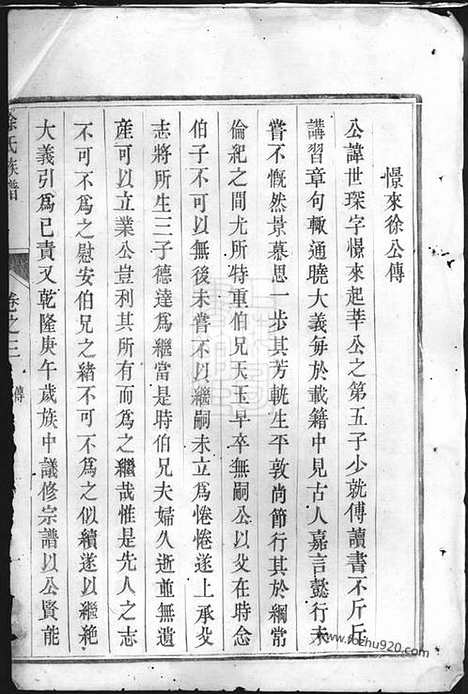 憬來徐公傳
公諱世琛字憬來起莘公之第五子少就傅讀書不斤斤
講習章句輒通曉大義每於載籍中見古人嘉言懿行未
嘗不慨然景慕思一步其芳軌生平敦尚節行其於綱常
倫紀之間尤所特重伯兄天玉早卒無嗣公以父在時念
伯子不可以無後未嘗不以繼嗣未立爲惓惓遂上承父
志將所生三子德達爲繼當是時伯兄夫婦久逝並無遺
產可以立業公豈利其所有而爲之繼哉惟是先人之志
不可不爲之慰安伯兄之緒不可不爲之似續遂以繼絶
大義引爲已責又乾隆庚午歲族中議修宗譜以公賢能
徐氏族譜
卷之三
傳
www.fozhu920.com